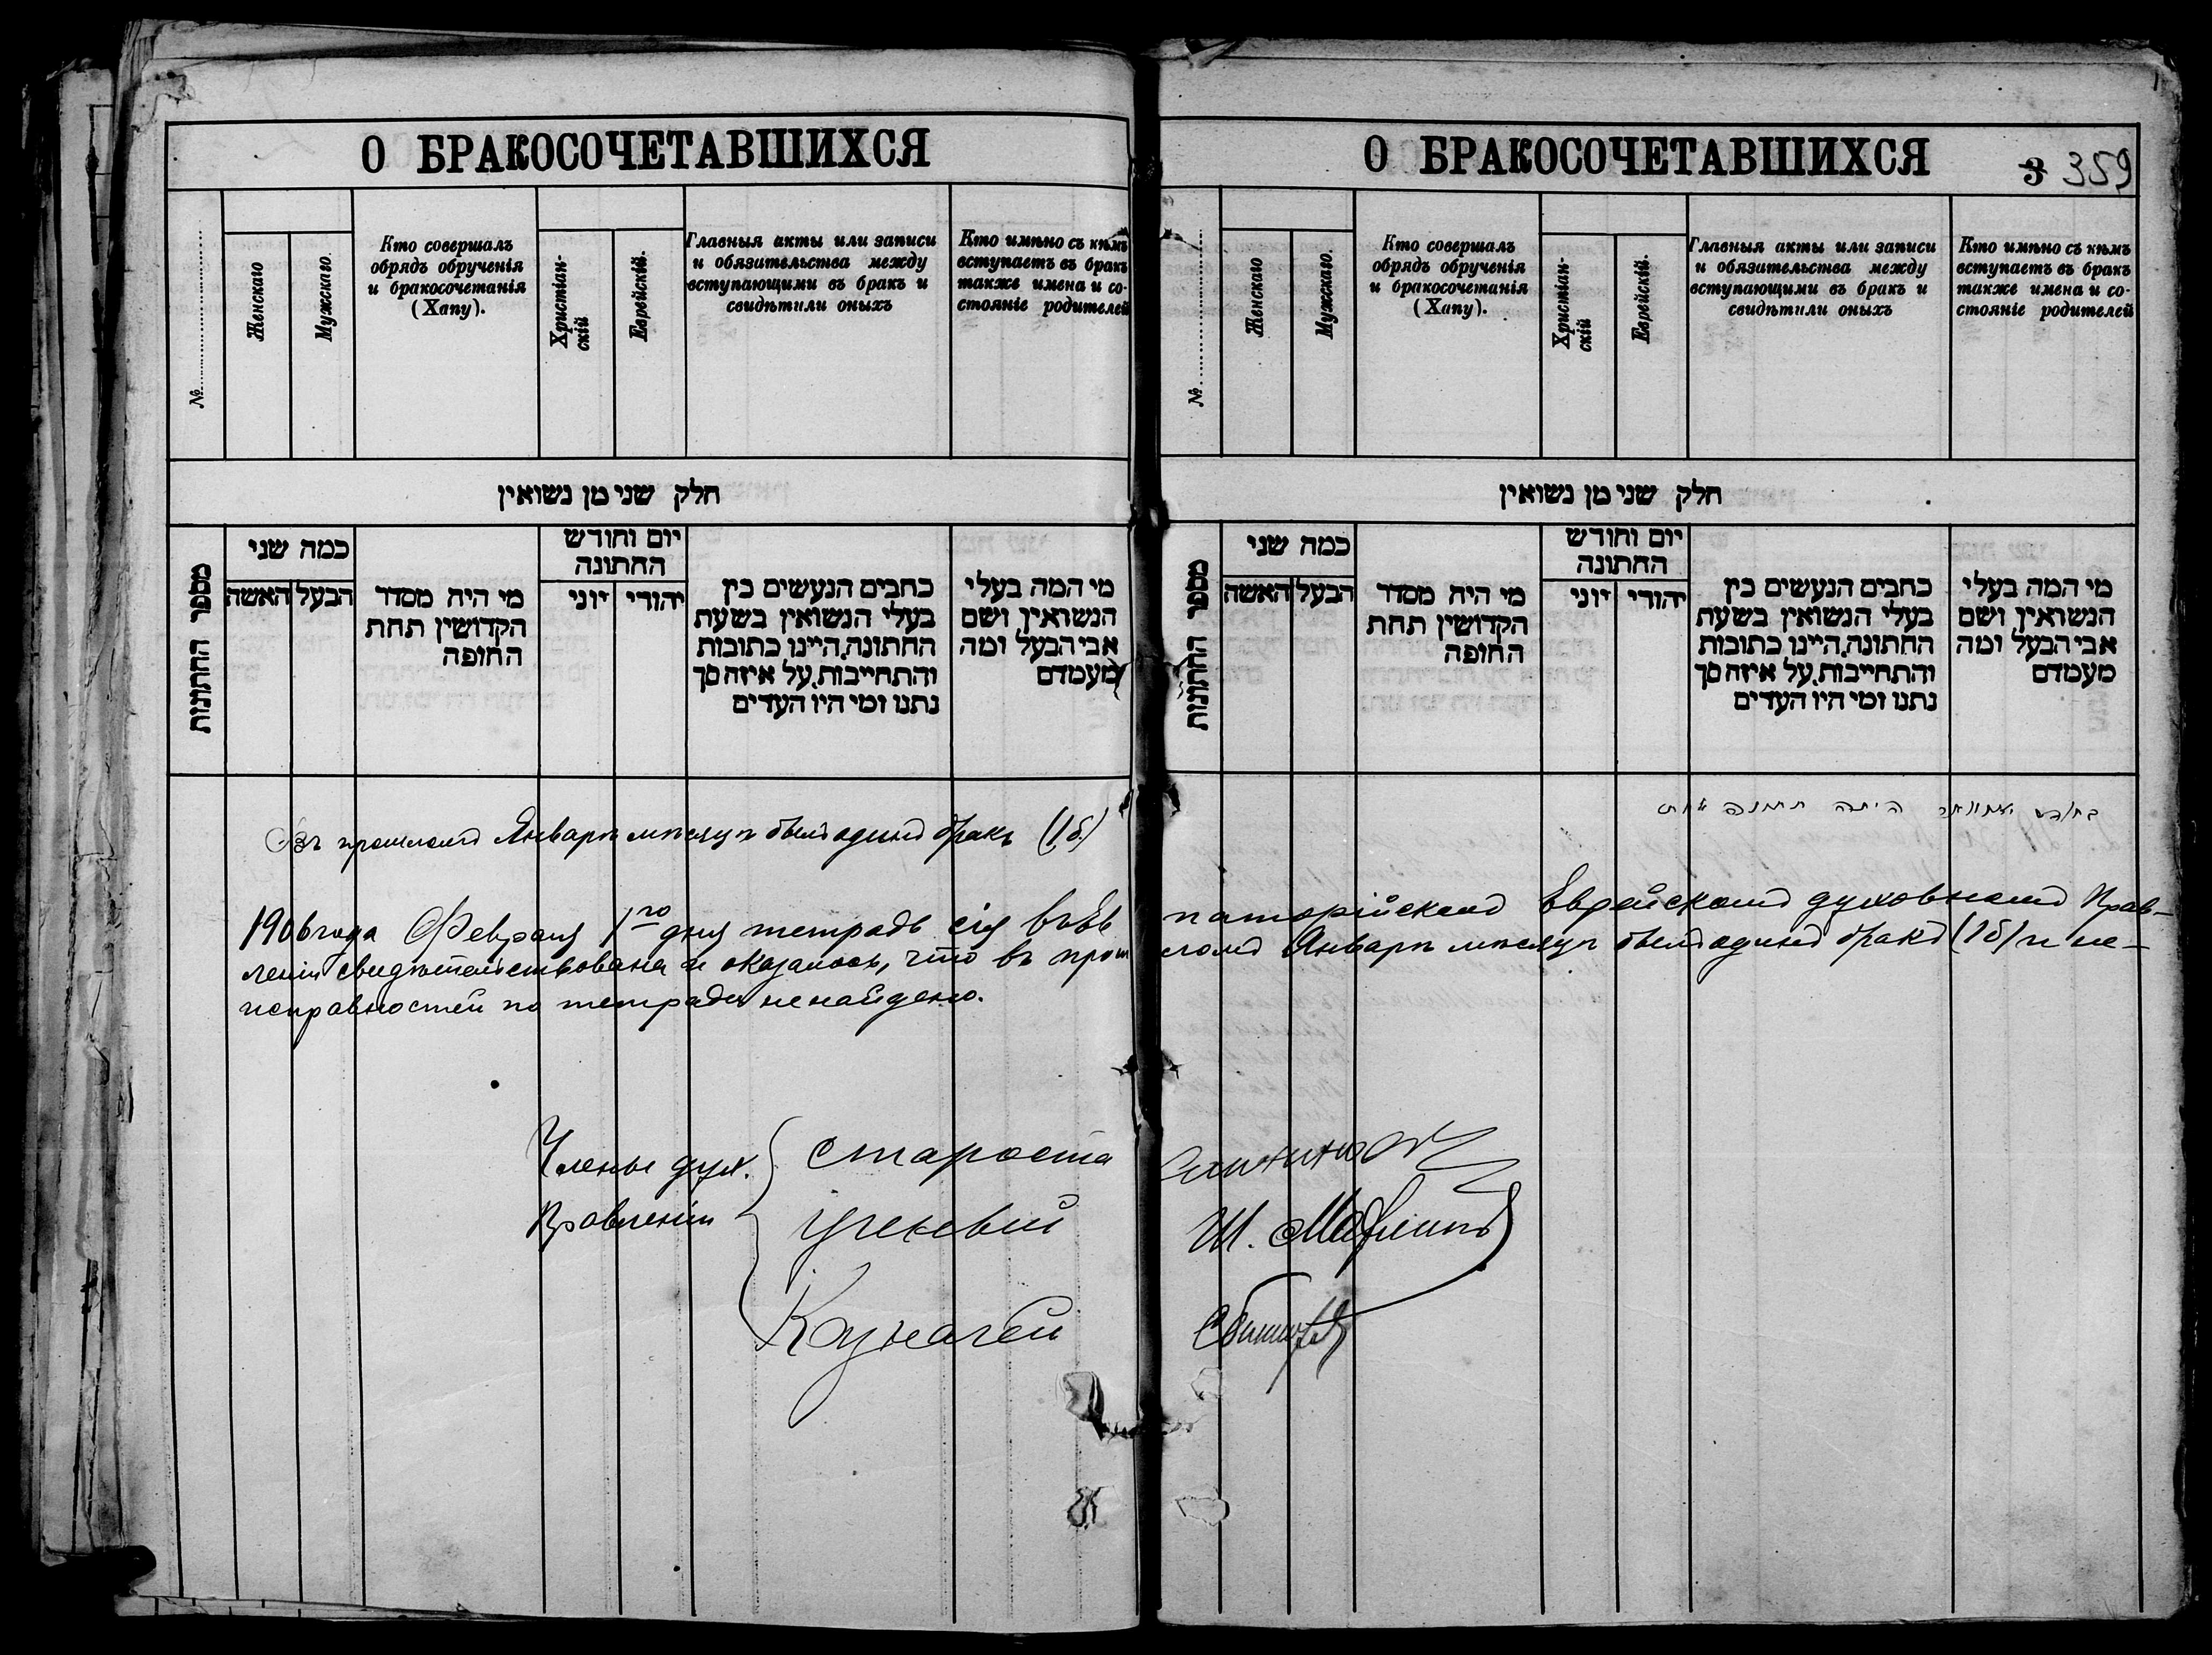 О БРАКОСОЧЕТАВШИХСЯ
№
Женскаго
Мужскаго.
Кто совершалъ
обрядъ обрученія
и бракосочетанія
(Хапу).
Христіан-
скій
Еврейскій.
Главныя акты или записи
и обязательства между
вступающими въ бракъ и
свидѣтили оныхъ
Кто имѣно съ кѣмъ
вступаетъ въ бракъ
также имена и со-
стояніе родителей
חלק שני מן נשואין
מספר החתונות
כמה שני
האשה
הבעל
מי היה מסדר
הקדושין תחת
החופה
יום וחודש
החתונה
יוני
יהודי
כתבים הנעשים בין
בעלי הנשואין בשעת
החתונה. היינו כתובות
והתחייבות. על איזה סך
נתנו ומי היו העדים
מי המה בעלי
הנשואין ושם
אבי הבעל ומה
מעמדם
Въ прошломъ Январѣ мѣсяцѣ былъ одинъ бракъ (1 б.)
1906 года Февраля 1го дня тетрадь сія въ Ев
леніи свидѣтельствована и оказалось, что въ прош
исправностей по тетради не найдено.
Члены дух.
Правленія
Староста
Ученый
Казначей
О БРАКОСОЧЕТАВШИХСЯ
3 359
№
Женскаго
Мужскаго.
Кто совершалъ
обрядъ обрученія
и бракосочетанія
(Хапу).
Христіан-
скій
Еврейскій.
Главныя акты или записи
и обязательства между
вступающими въ бракъ и
свидѣтили оныхъ
Кто имѣно съ кѣмъ
вступаетъ въ бракъ
также имена и со-
стояніе родителей
חלק שני מן נשואין
מספר החתונות
כמה שני
האשה
הבעל
מי היה מסדר
הקדושין תחת
החופה
יום וחודש
החתונה
יוני
יהודי
כתבים הנעשים בין
בעלי הנשואין בשעת
החתונה. היינו כתובות
והתחייבות. על איזה סך
נתנו ומי היו העדים
מי המה בעלי
הנשואין ושם
אבי הבעל ומה
מעמדם
בחדש היתה חתונה אחת
паторійскомъ Еврейскомъ духовномъ Прав-
ломъ Январѣ мѣсяцѣ былъ одинъ бракъ (1 б) и не-
Ш.